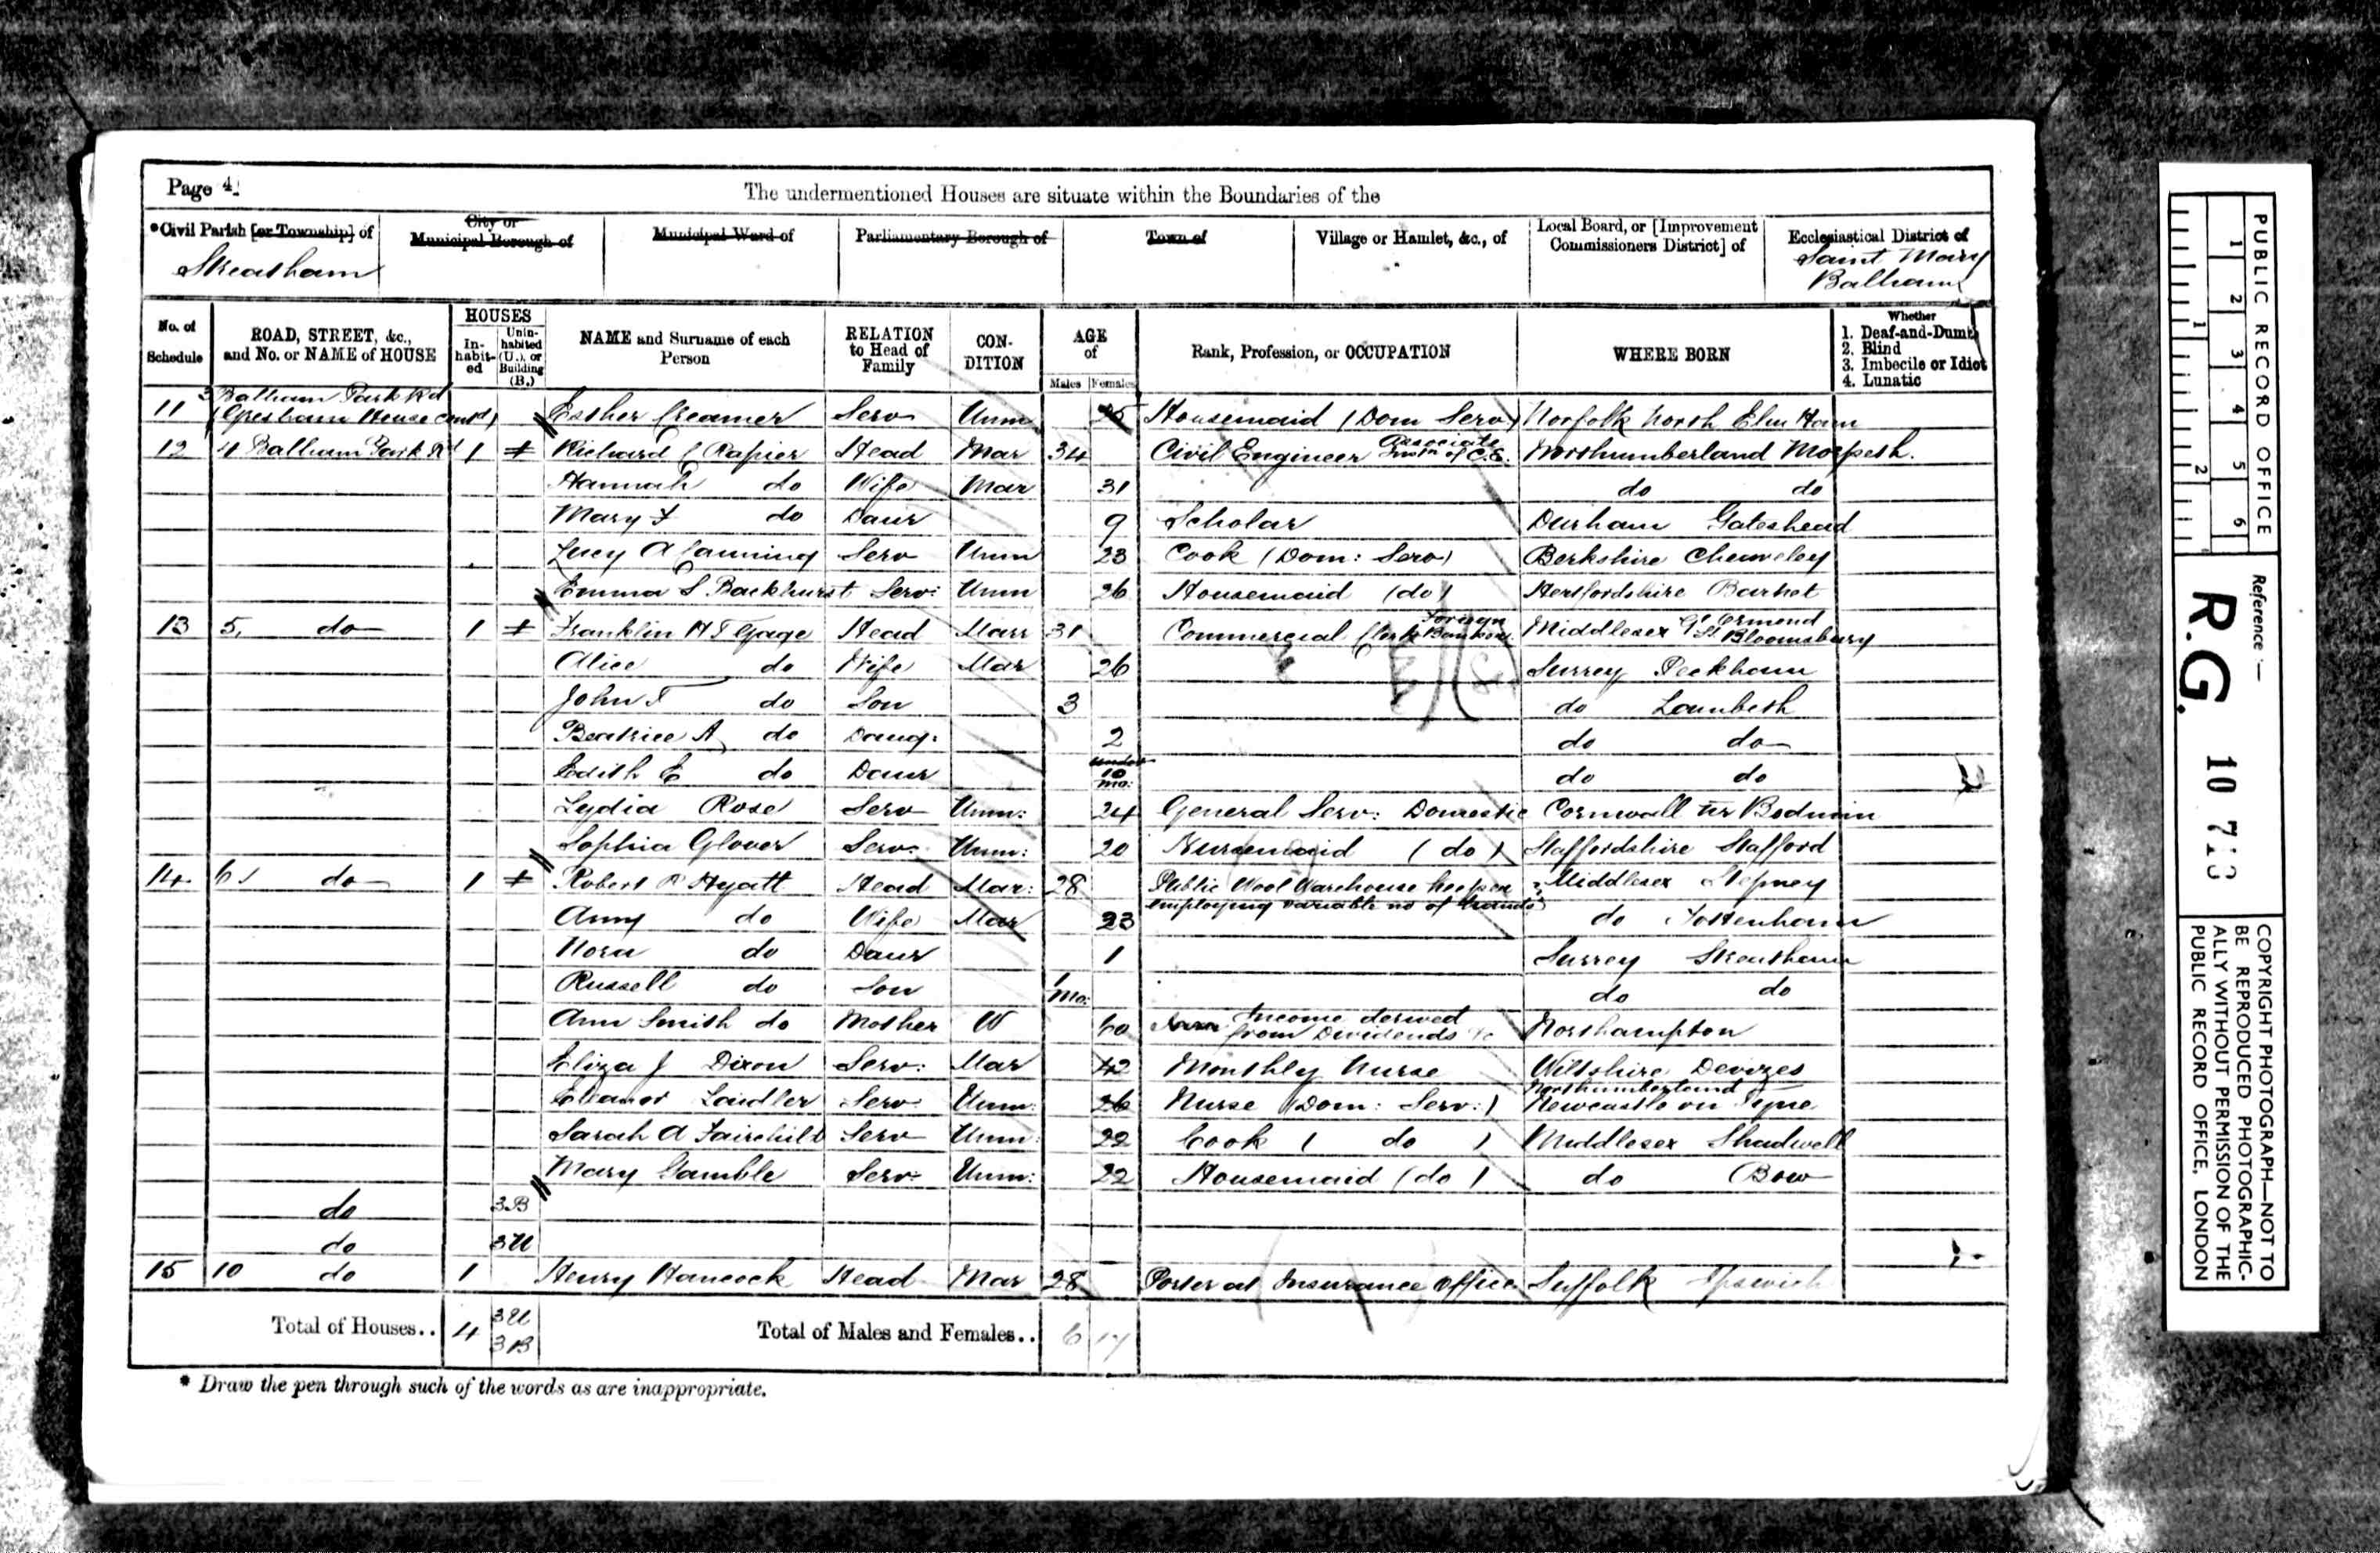 Page 4
The undermentioned Houses are situate within the Boundaries of the
*Civil Parish [or Township] of
City or Municipal Borough of
Municipal Ward of
Parliamentary Borough of
Town of
Village or Hamlet, &c., of
Local Board, or [Improvement Commissioners District] of
Ecclesiastical District of
Streatham
Saint Mary
Balham
No. of Schedule
ROAD, STREET, &c., and No. or NAME of HOUSE
HOUSES
In-habit-ed
Unin-habited (U.), or Building (B.)
NAME and Surname of each Person
RELATION to Head of Family
CON-DITION
AGE of
Males
Females
Rank, Profession, or OCCUPATION
WHERE BORN
Whether
1. Deaf-and-Dumb
2. Blind
3. Imbecile or Idiot
4. Lunatic
3 Balham Park Rd
11 (Gresham House contd) Esther Creamer Serv Unm 25 Housemaid (Dom Serv) Norfolk North Elm Ham
12 4 Balham Park Rd 1 Richard C Rapier Head Mar 34 Civil Engineer Associate Instn of C.E. Northumberland Morpeth
Hannah do Wife Mar 31 do do
Mary F do Daur 9 Scholar Durham Gateshead
Lucy A Canning Serv Unm 23 Cook (Dom: Serv) Berkshire Chieveley
Emma S Backhurst Serv: Unm 26 Housemaid (do) Hertfordshire Barnet
13 5, do 1 Franklin H T Gage Head Marr 31 Commercial Clerk Foreign Bankers Middlesex Gt Ormond St Bloomsbury
Alice do Wife Mar 26 Surrey Peckham
John F do Son 3 do Lambeth
Beatrice A do Daug: 2 do do
Edith E do Daur under 10 mo: do do
Lydia Rose Serv Unm: 24 General Serv: Domestic Cornwall nr Bodmin
Sophia Glover Serv: Unm: 20 Nursemaid (do) Staffordshire Stafford
14 6, do 1 Robert R Hyatt Head Mar: 28 Public Wool Warehouse keeper Middlesex Stepney
employing variable no of hands
Amy do Wife Mar 23 do Tottenham
Nora do Daur 1 Surrey Streatham
Russell do Son 1 Mo: do do
Ann Smith do Mother W 60 Income derived from Dividends &c Northampton
Eliza J Dixon Serv: Mar 42 Monthly Nurse Wiltshire Devizes
Eleanor Sandler Serv Unm: 26 Nurse (Dom: Serv:) Northumberland Newcastle on Tyne
Sarah A Fairchild Serv Unm: 22 Cook (do) Middlesex Shadwell
Mary Gamble Serv: Unm: 22 Housemaid (do) do Bow
do 3B
do 3U
15 10 do 1 Henry Hancock Head Mar 28 Porter at Insurance Office Suffolk Ipswich
Total of Houses.. 4 3U 3B Total of Males and Females.. 6 17
* Draw the pen through such of the words as are inappropriate.
PUBLIC RECORD OFFICE
1 2 3 4 5 6
1 2
Reference :—
R.G. 10 713
COPYRIGHT PHOTOGRAPH—NOT TO
BE REPRODUCED PHOTOGRAPHIC-
ALLY WITHOUT PERMISSION OF THE
PUBLIC RECORD OFFICE, LONDON